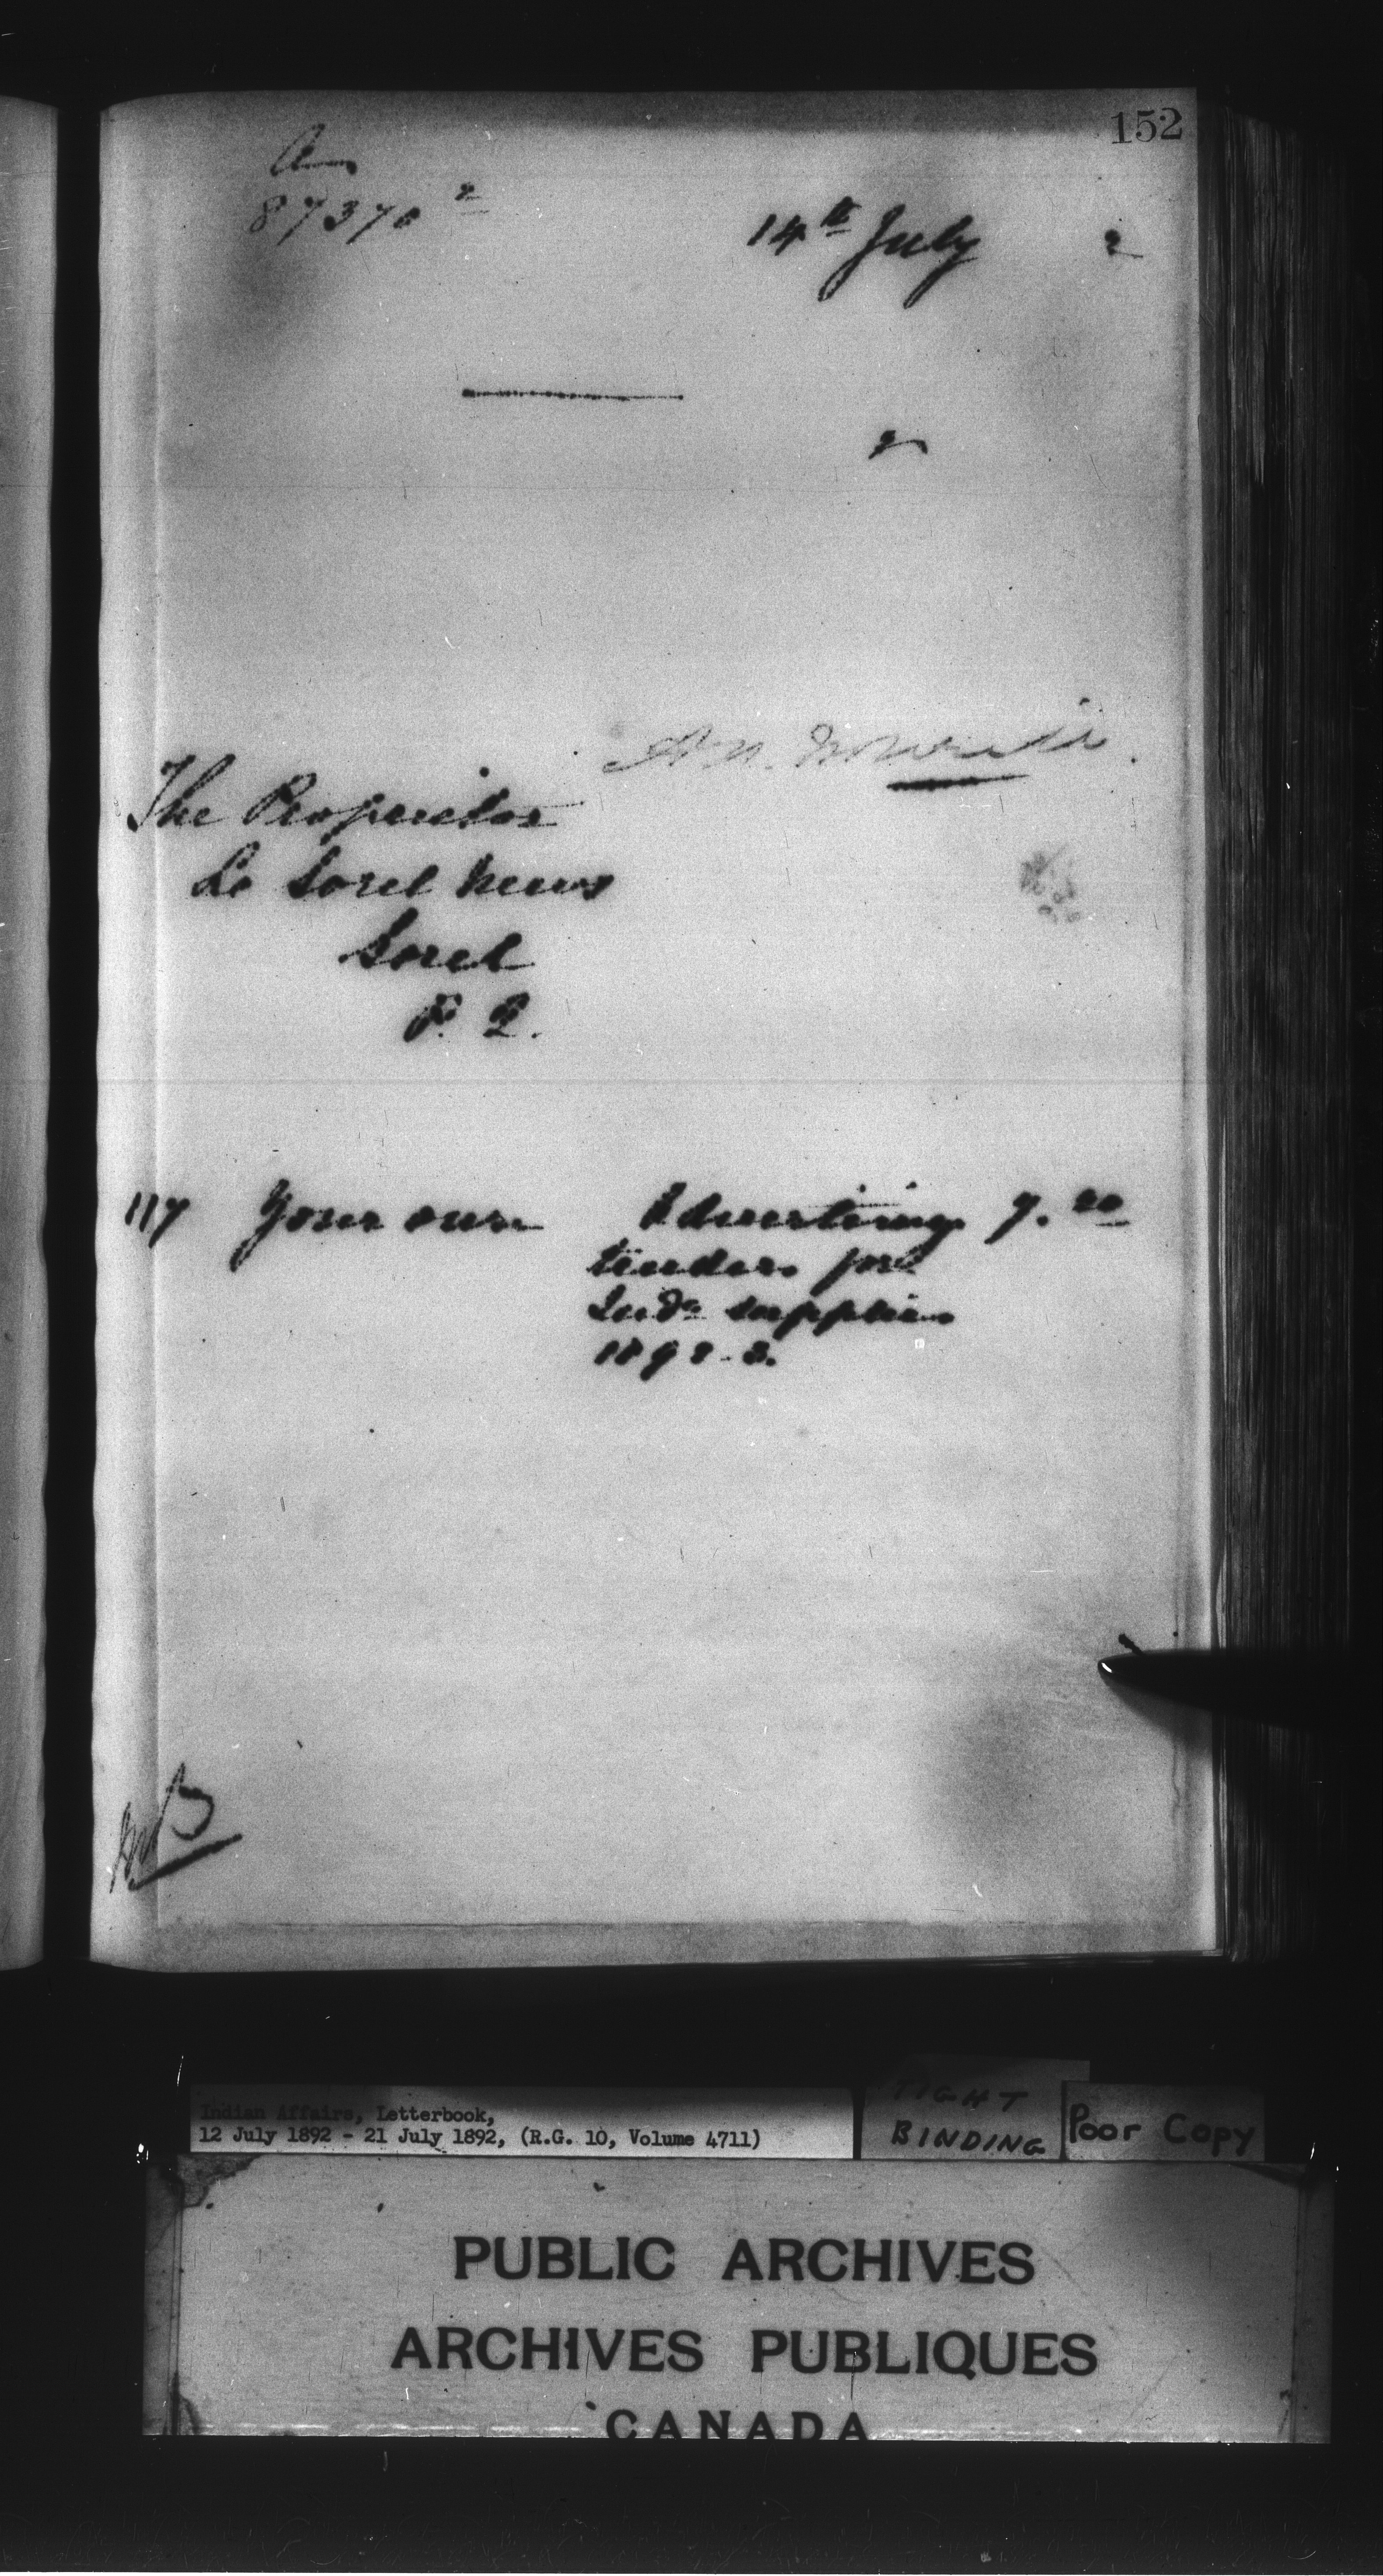 152
A
87370 2
14th July 2
The Proprietor
Le Sorel News
Sorel
P. Q.
117 Your own Advertising 7.20
tenders for
Inds supplies
1892-3.
Indian Affairs, Letterbook,
12 July 1892 - 21 July 1892, (R.G. 10, Volume 4711)
TIGHT
BINDING
Poor Copy
PUBLIC ARCHIVES
ARCHIVES PUBLIQUES
CANADA